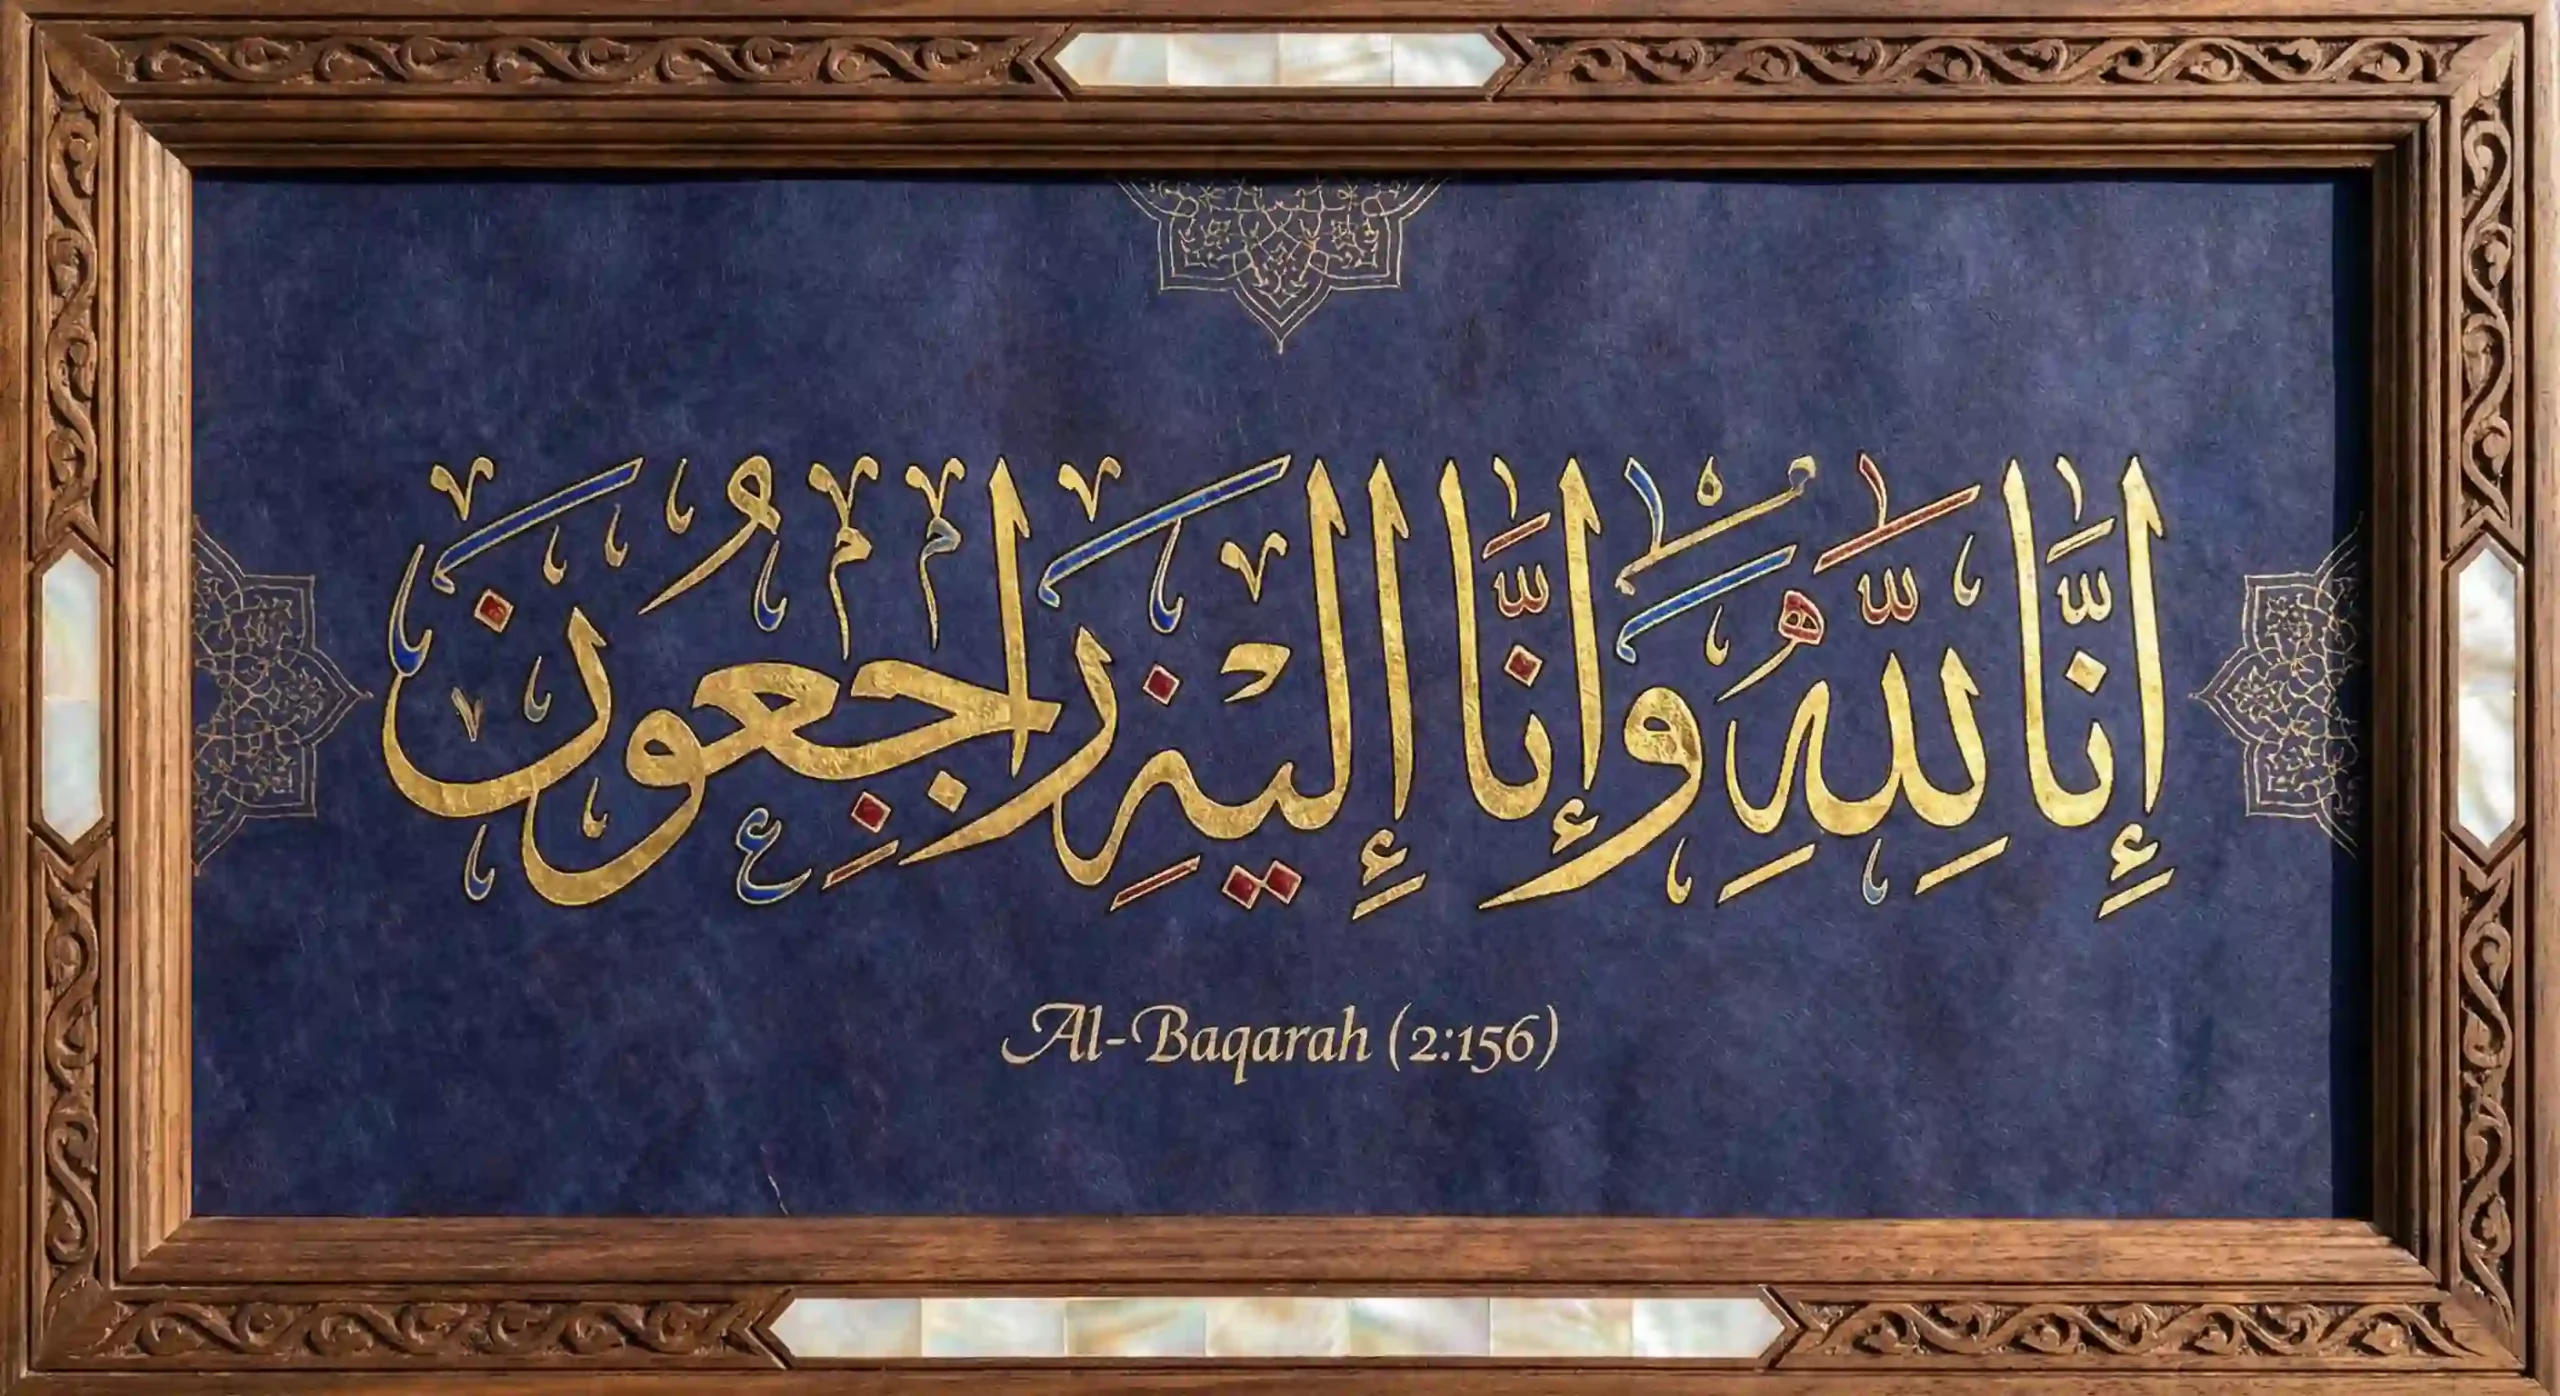 إِنَّا لِلَّهِ وَإِنَّا إِلَيْهِ رَاجِعُونَ
Al-Baqarah (2:156)